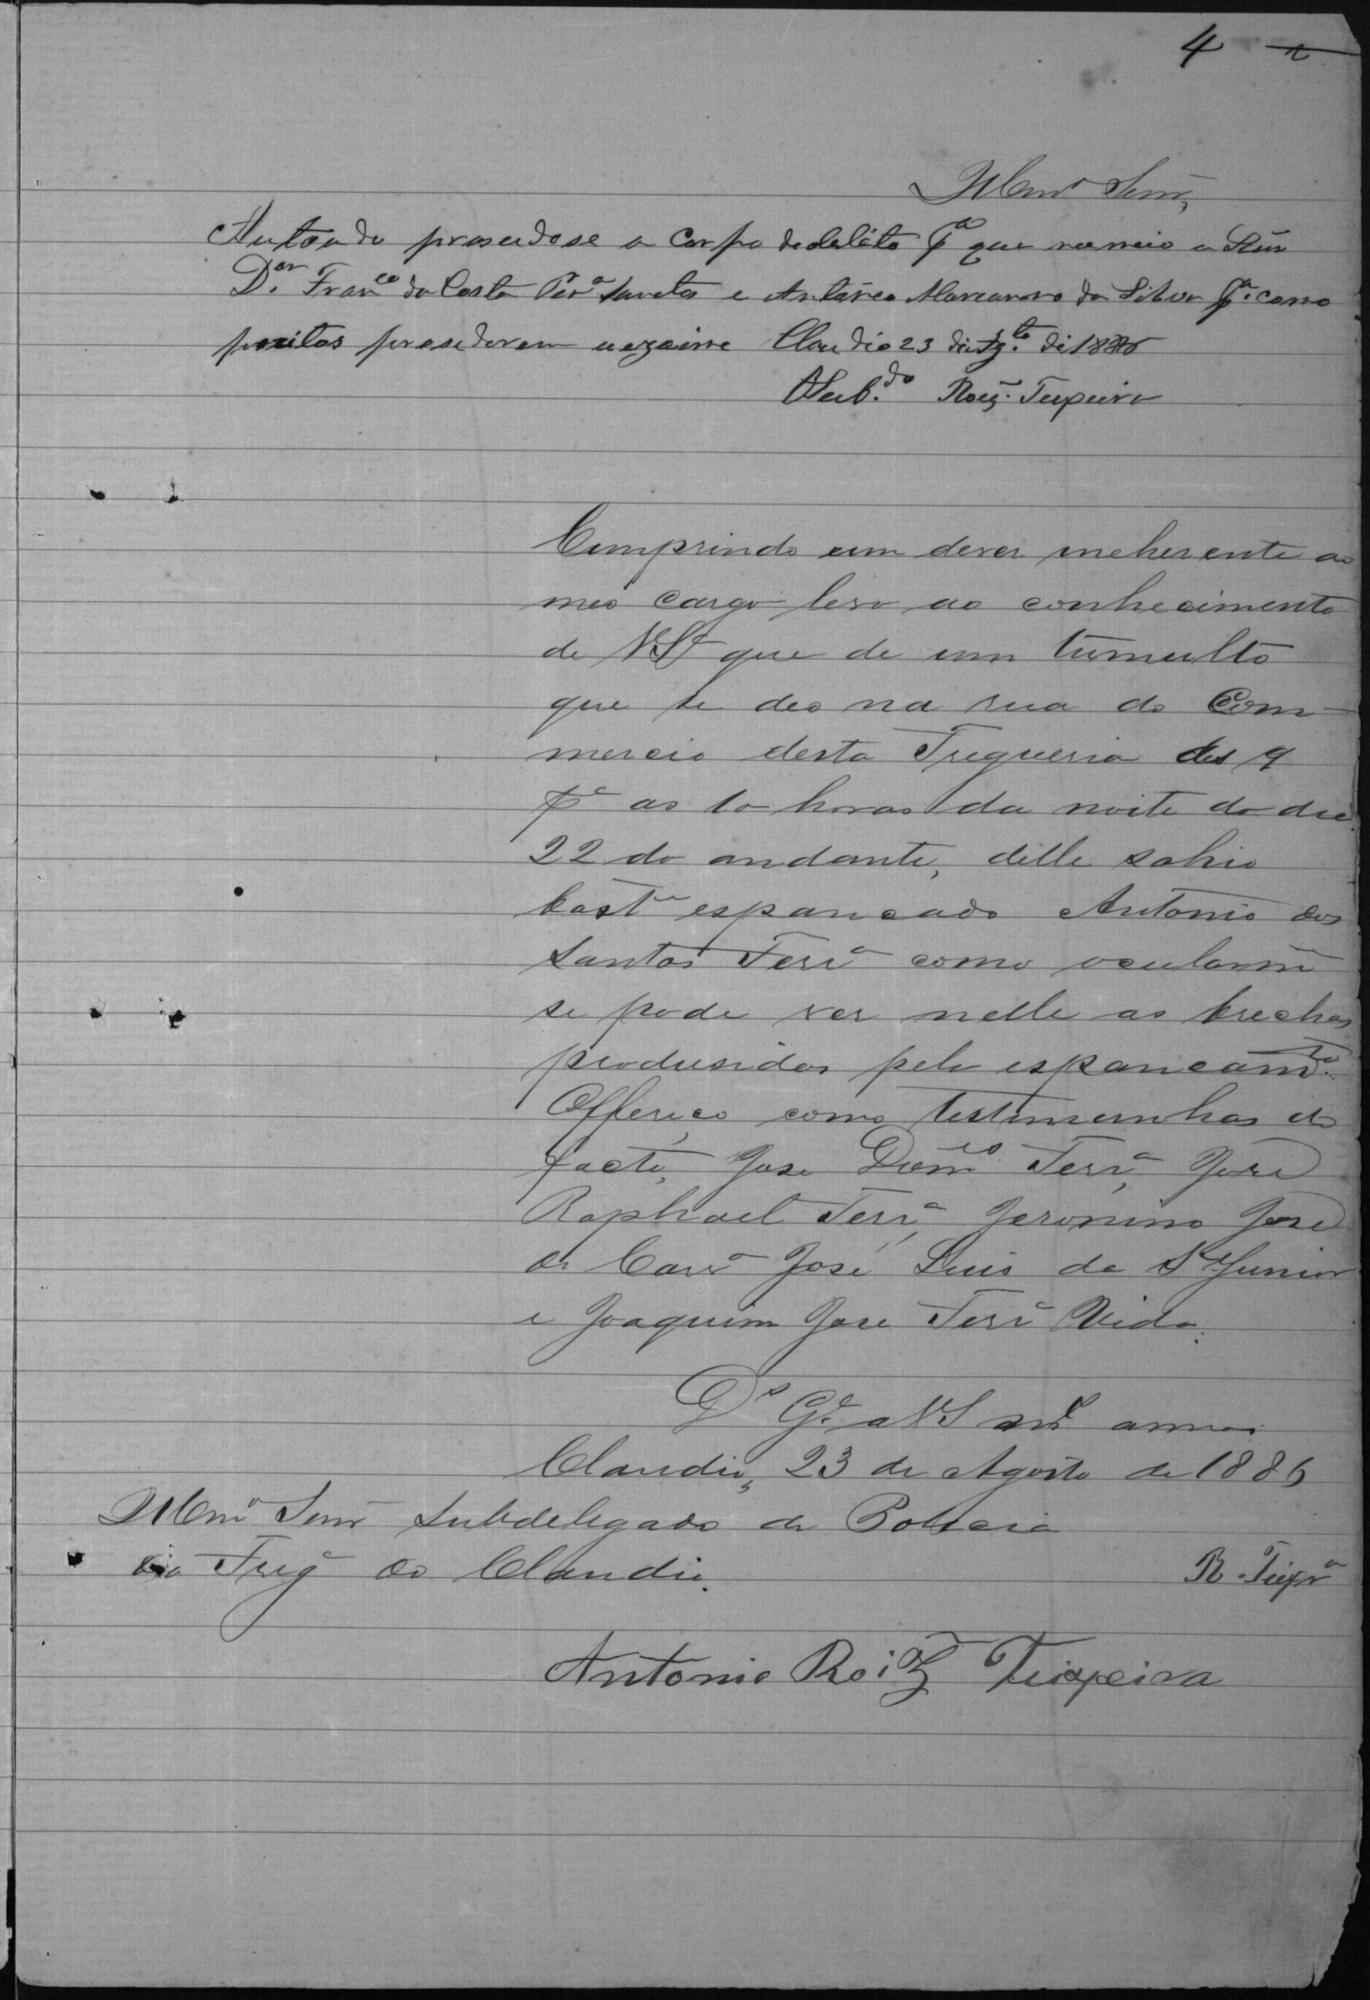 4
Illmo Senr,
Autoado proseudose a Corpo dedelito pa que nomeio o Snr
Dor. Franco da Costa Perª Santos e Antonio Marcianno da Silva pª. como
peritos prosederem o ezame Claudio 23 di Agto. di 1886
O Sub.do Roiz. Teixeira
Cumprindo um dever incherente ao
meo cargo levo ao conhecimento
de VSª que de um tumulto
que se deo na rua do Com-
mercio desta Fregueria das 9
pª as 10 horas da noite do dia
22 do andante, delle sahio
bastª espancado Antonio dos
Santos Ferª como ocularme
se pode ver nelle as brechas
produsidas pelo espancamto.
Offereço como testimunhas do
facto, Jose Domos Ferª, José
Raphael Ferª, Jeronimo José
de Carvº José Luis da Sª Junior
e Joaquim Jose Ferª Vida.
Ds Ge. a VS ms annos
Claudio, 23 de Agosto de 1886
Illmo Senr Subdelegado de Policia
da Fregª do Claudio.
R. Teixrª
Antonio Roiz Teixeira